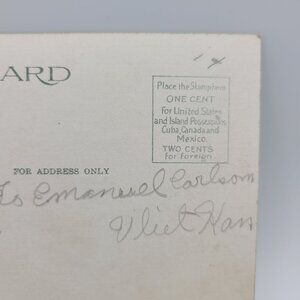 ARD
Place the Stamp here
ONE CENT
For United States
and Island Possessions
Cuba, Canada and
Mexico.
TWO CENTS
For Foreign
FOR ADDRESS ONLY
To Emanuel Carlson
Vliet Kan